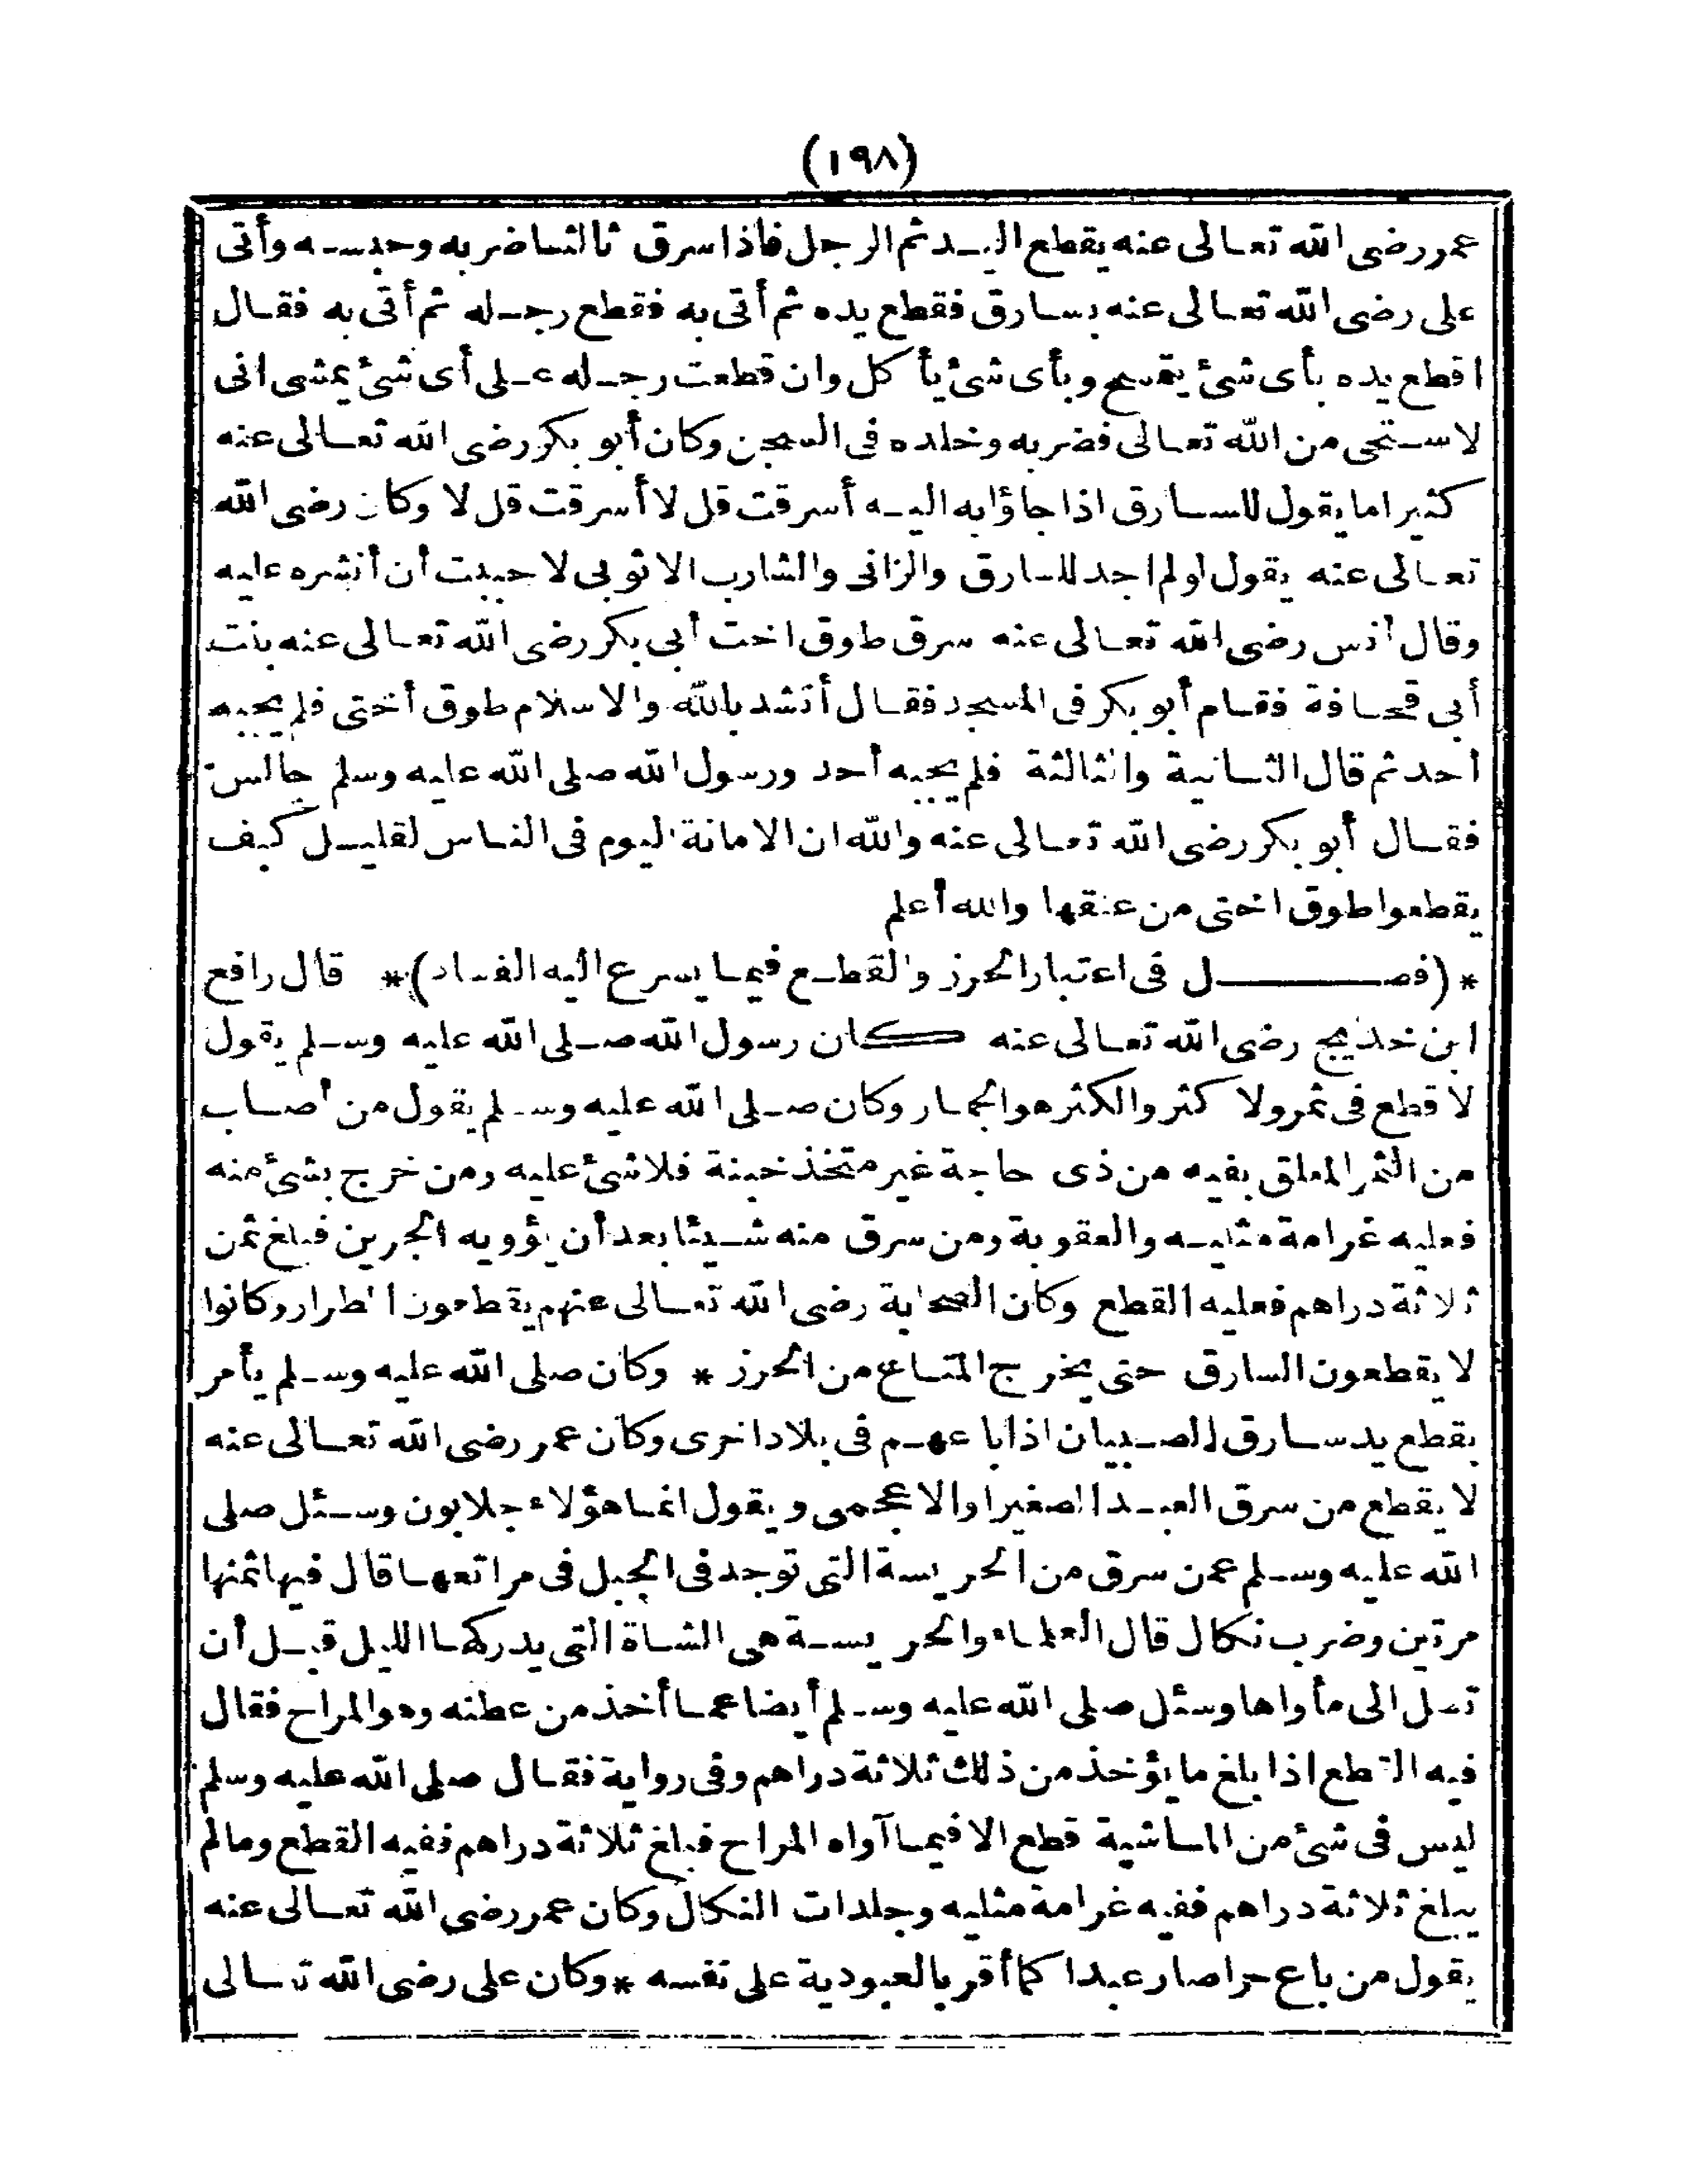 (١٩٨)
عمر رضى الله تعالى عنه يقطع اليد ثم الرجل فاذا سرق ثالثا ضربه وحبسه وأتى
على رضى الله تعالى عنه بسارق فقطع يده ثم أتى به فقطع رجله ثم أتى به فقال
اقطع يده بأى شئ يتمسح وبأى شئ يأكل وان قطعت رجله على أى شئ يمشى انى
لاستحى من الله تعالى فضربه وخلده فى السجن وكان أبو بكر رضى الله تعالى عنه
كثيرا ما يقول للسارق اذا جاؤا به اليه أسرقت قل لا أسرقت قل لا وكان رضى الله
تعالى عنه يقول لو لم اجد للسارق والزانى والشارب الا ثوبى لاحببت أن أنشره عليه
وقال أنس رضى الله تعالى عنه سرق طوق اخت أبى بكر رضى الله تعالى عنه بنت
أبى قحافة فقام أبو بكر فى المسجد فقال أنشد بالله والاسلام طوق أختى فلم يجبه
أحد ثم قال الثانية والثالثة فلم يجبه أحد ورسول الله صلى الله عليه وسلم جالس
فقال أبو بكر رضى الله تعالى عنه والله ان الامانة اليوم فى الناس لقليل كيف
يقطعوا طوق اختى من عنقها والله أعلم
* (فصل فى اعتبار الحرز والقطع فيما يسرع اليه الفساد)* قال رافع
ابن خديج رضى الله تعالى عنه كان رسول الله صلى الله عليه وسلم يقول
لا قطع فى ثمر ولا كثر والكثر هو الجمار وكان صلى الله عليه وسلم يقول من أصاب
من الثمر المعلق بفيه من ذى حاجة غير متخذ خبنة فلا شئ عليه ومن خرج بشئ منه
فعليه غرامة مثليه والعقوبة ومن سرق منه شيئا بعد أن يؤويه الجرين فبلغ ثمن
ثلاثة دراهم فعليه القطع وكان الصحابة رضى الله تعالى عنهم يقطعون الطرار وكانوا
لا يقطعون السارق حتى يخرج المتاع من الحرز * وكان صلى الله عليه وسلم يأمر
بقطع يد سارق الصبيان اذا باعهم فى بلاد اخرى وكان عمر رضى الله تعالى عنه
لا يقطع من سرق العبد الصغير او الاعجمى ويقول انما هؤلاء جلابون وسئل صلى
الله عليه وسلم عمن سرق من الحريسة التى توجد فى الجبل فى مراتعها قال فيها ثمنها
مرتين وضرب نكال قال العلماء والحريسة هى الشاة التى يدركها الليل قبل أن
تصل الى مأواها وسئل صلى الله عليه وسلم أيضا عما أخذ من عطنه وهو المراح فقال
فيه القطع اذا بلغ ما يؤخذ من ذلك ثلاثة دراهم وفى رواية فقال صلى الله عليه وسلم
ليس فى شئ من الماشية قطع الا فيما آواه المراح فبلغ ثلاثة دراهم ففيه القطع وما لم
يبلغ ثلاثة دراهم ففيه غرامة مثليه وجلدات النكال وكان عمر رضى الله تعالى عنه
يقول من باع حرا صار عبدا كما أقر بالعبودية على نفسه * وكان على رضى الله تعالى